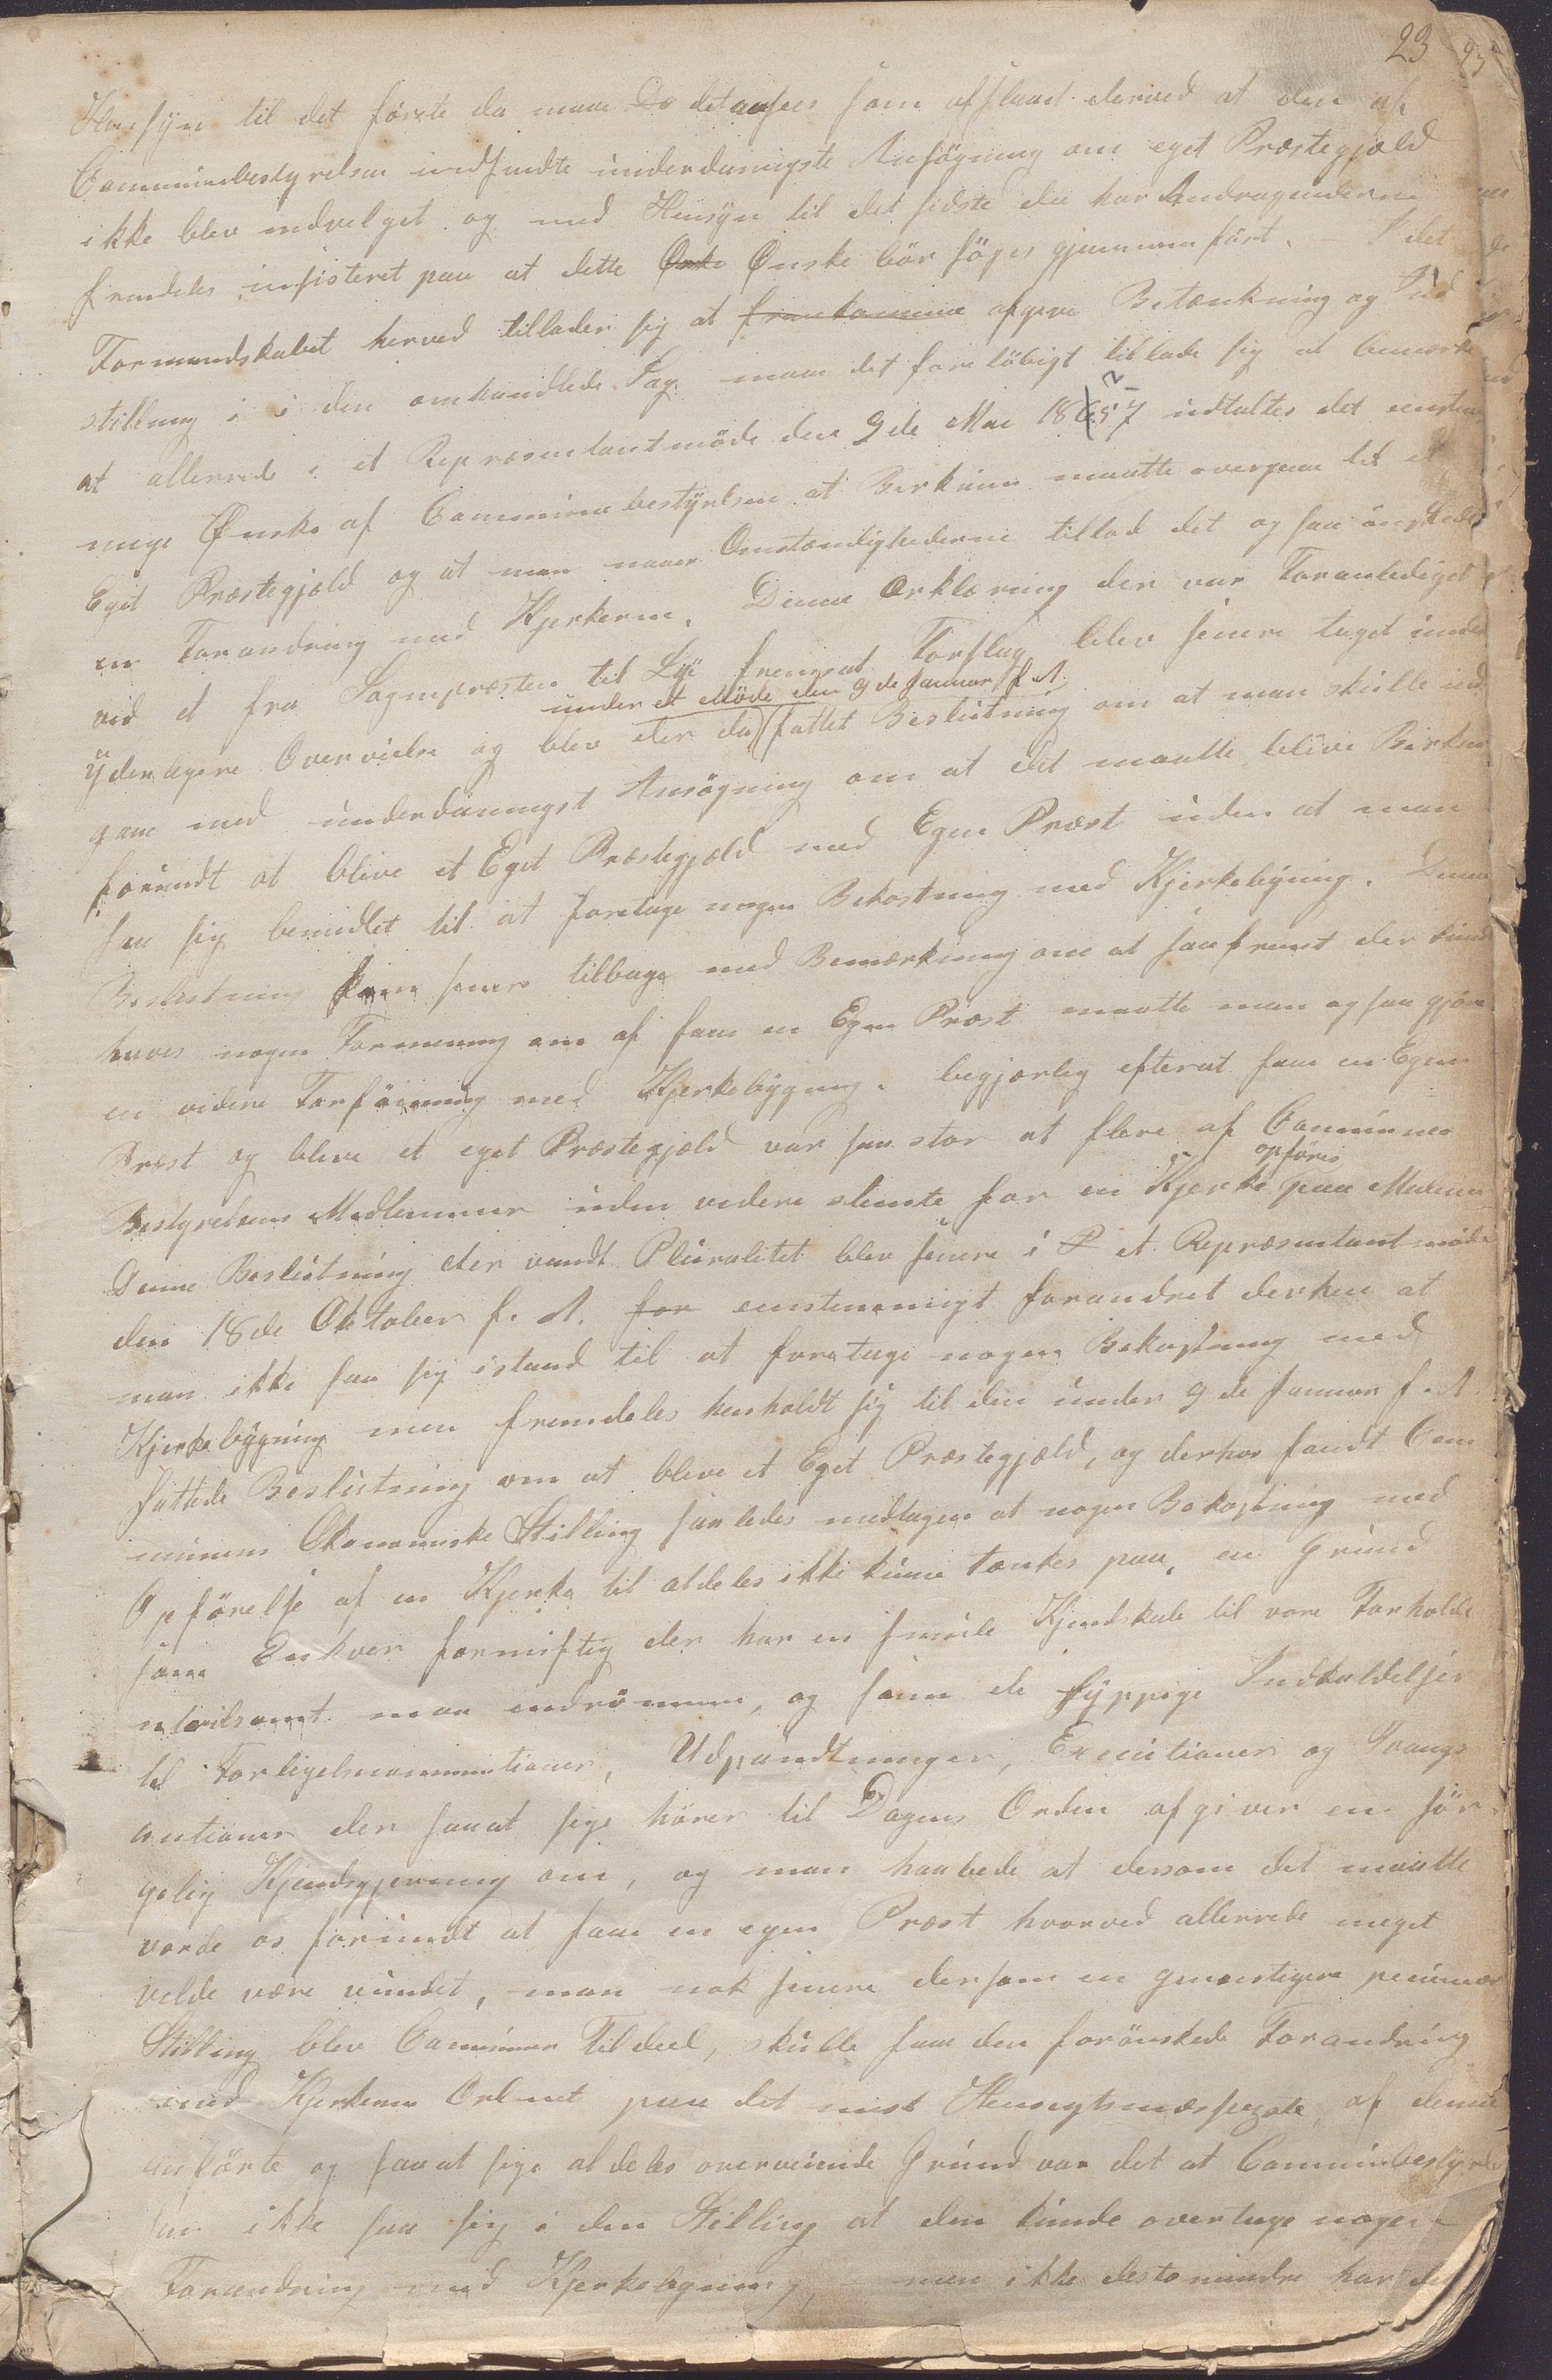 23
Hensÿn til det første da maae Do det ansees som afslaaet derved at den af
Communebestyrelsen indsendte underdanigste Ansögning om eget Præstegjæld
ikke blev indvelget og med Hensÿn til det sidste da har Andragenderne
fremdeles insisteret paa at dette Önske Ønske bör söges gjennemfört. – I det
Formandskabet herved tillader sig at fremkomme afgive Betænkning og Ind
stilling i i den omhandlede Sag maae det foreløbigt tillade sig at bemærke
at allerede i et Repræsentantmöde den 9de Mai 1857 udtaltes det eenstem
mige Ønske af Communebestÿrelsen at Birkrem maatte overgaae til et
Eget Præstegjæld og at man naaer Omstændighederne tillod det ogsaa önskede
en Forandring med Kjerkerne. Denne Erklæring der var Foranlediget
ved et fra Sognepræsten til Lÿe fremsat Forslag blev senere taget under
under et Möde den 9de Januar f. A.
ÿderligere Overveielse og blev der da fattet Beslutning om at man skulde ind
gaae med underdanigst Ansögning om at det maatte blive Birkrem
forundt at blive et Eget Præstegjæld med Egen Præst uden at man
saa sig bemidlet til at foretage nogen Bekostning med Kjerkebÿgning. Denne
Beslutning kom senere tilbage med Bemærkning om at saafremt der kunde
haves nogen Formening om at faae en Egen Præst maatte man ogsaa gjöre
en videre Forföining med Kjerkebÿgning. begjærlig efterat faae en Egen
Præst og blive et eget Præstegjæld var saa stor at flere af Commune
opföres
Bestyrelsens Medlemmer uden videre stemte for en Kjerke paa
Denne Beslutning der vandt Pluralitet blev senere i R et Repræsentantmöde
den 18de Oktober f. A. for eenstemmigt forandret derhen at
man ikke saa sig istand til at foretage nogen Bekostning med
Kjerkebÿgning men fremdeles henholdt sig til den under 9de Januar f. A.
fattede Beslutning om at blive et Eget Præstegjæld, og derhos fandt Com
munens Økonomiske Stilling saaledes medtagen at nogen Bekostning med
Opförelse af en Kjerke til aldeles ikke kunne tænkes paa, en Grund
som Enhver fornuftig der har en smule Kjendskab til vore Forholde
maa indrömme, og som de hÿppige Indkaldelser
til Forligelsescommissioner, Udpandtninger, Executioner og Tvangs
auctioner der saaat sige hörer til Dagens Orden afgiver en sör
gelig Kjendsgjerning om, og man haabede at dersom det maatte
vorde os forundt at faae en egen Præst hvorved allerede meget
vilde være vundet, man nok senere dersom en gunstigere pecuniær
Stilling blev Communen Tildeel, skulle faae den forönskede Forandring
med Kjerkerne Ordnet paa det mest Hensigtsmæssigste, af denne
anförte og saaat sige aldeles overveiende Grund var det at Communbestÿrel
sen ikke saa sig i den Stilling at den kunde overtage nogen
Forandring med Kjerkebÿgning, – men ikke destomindre har de